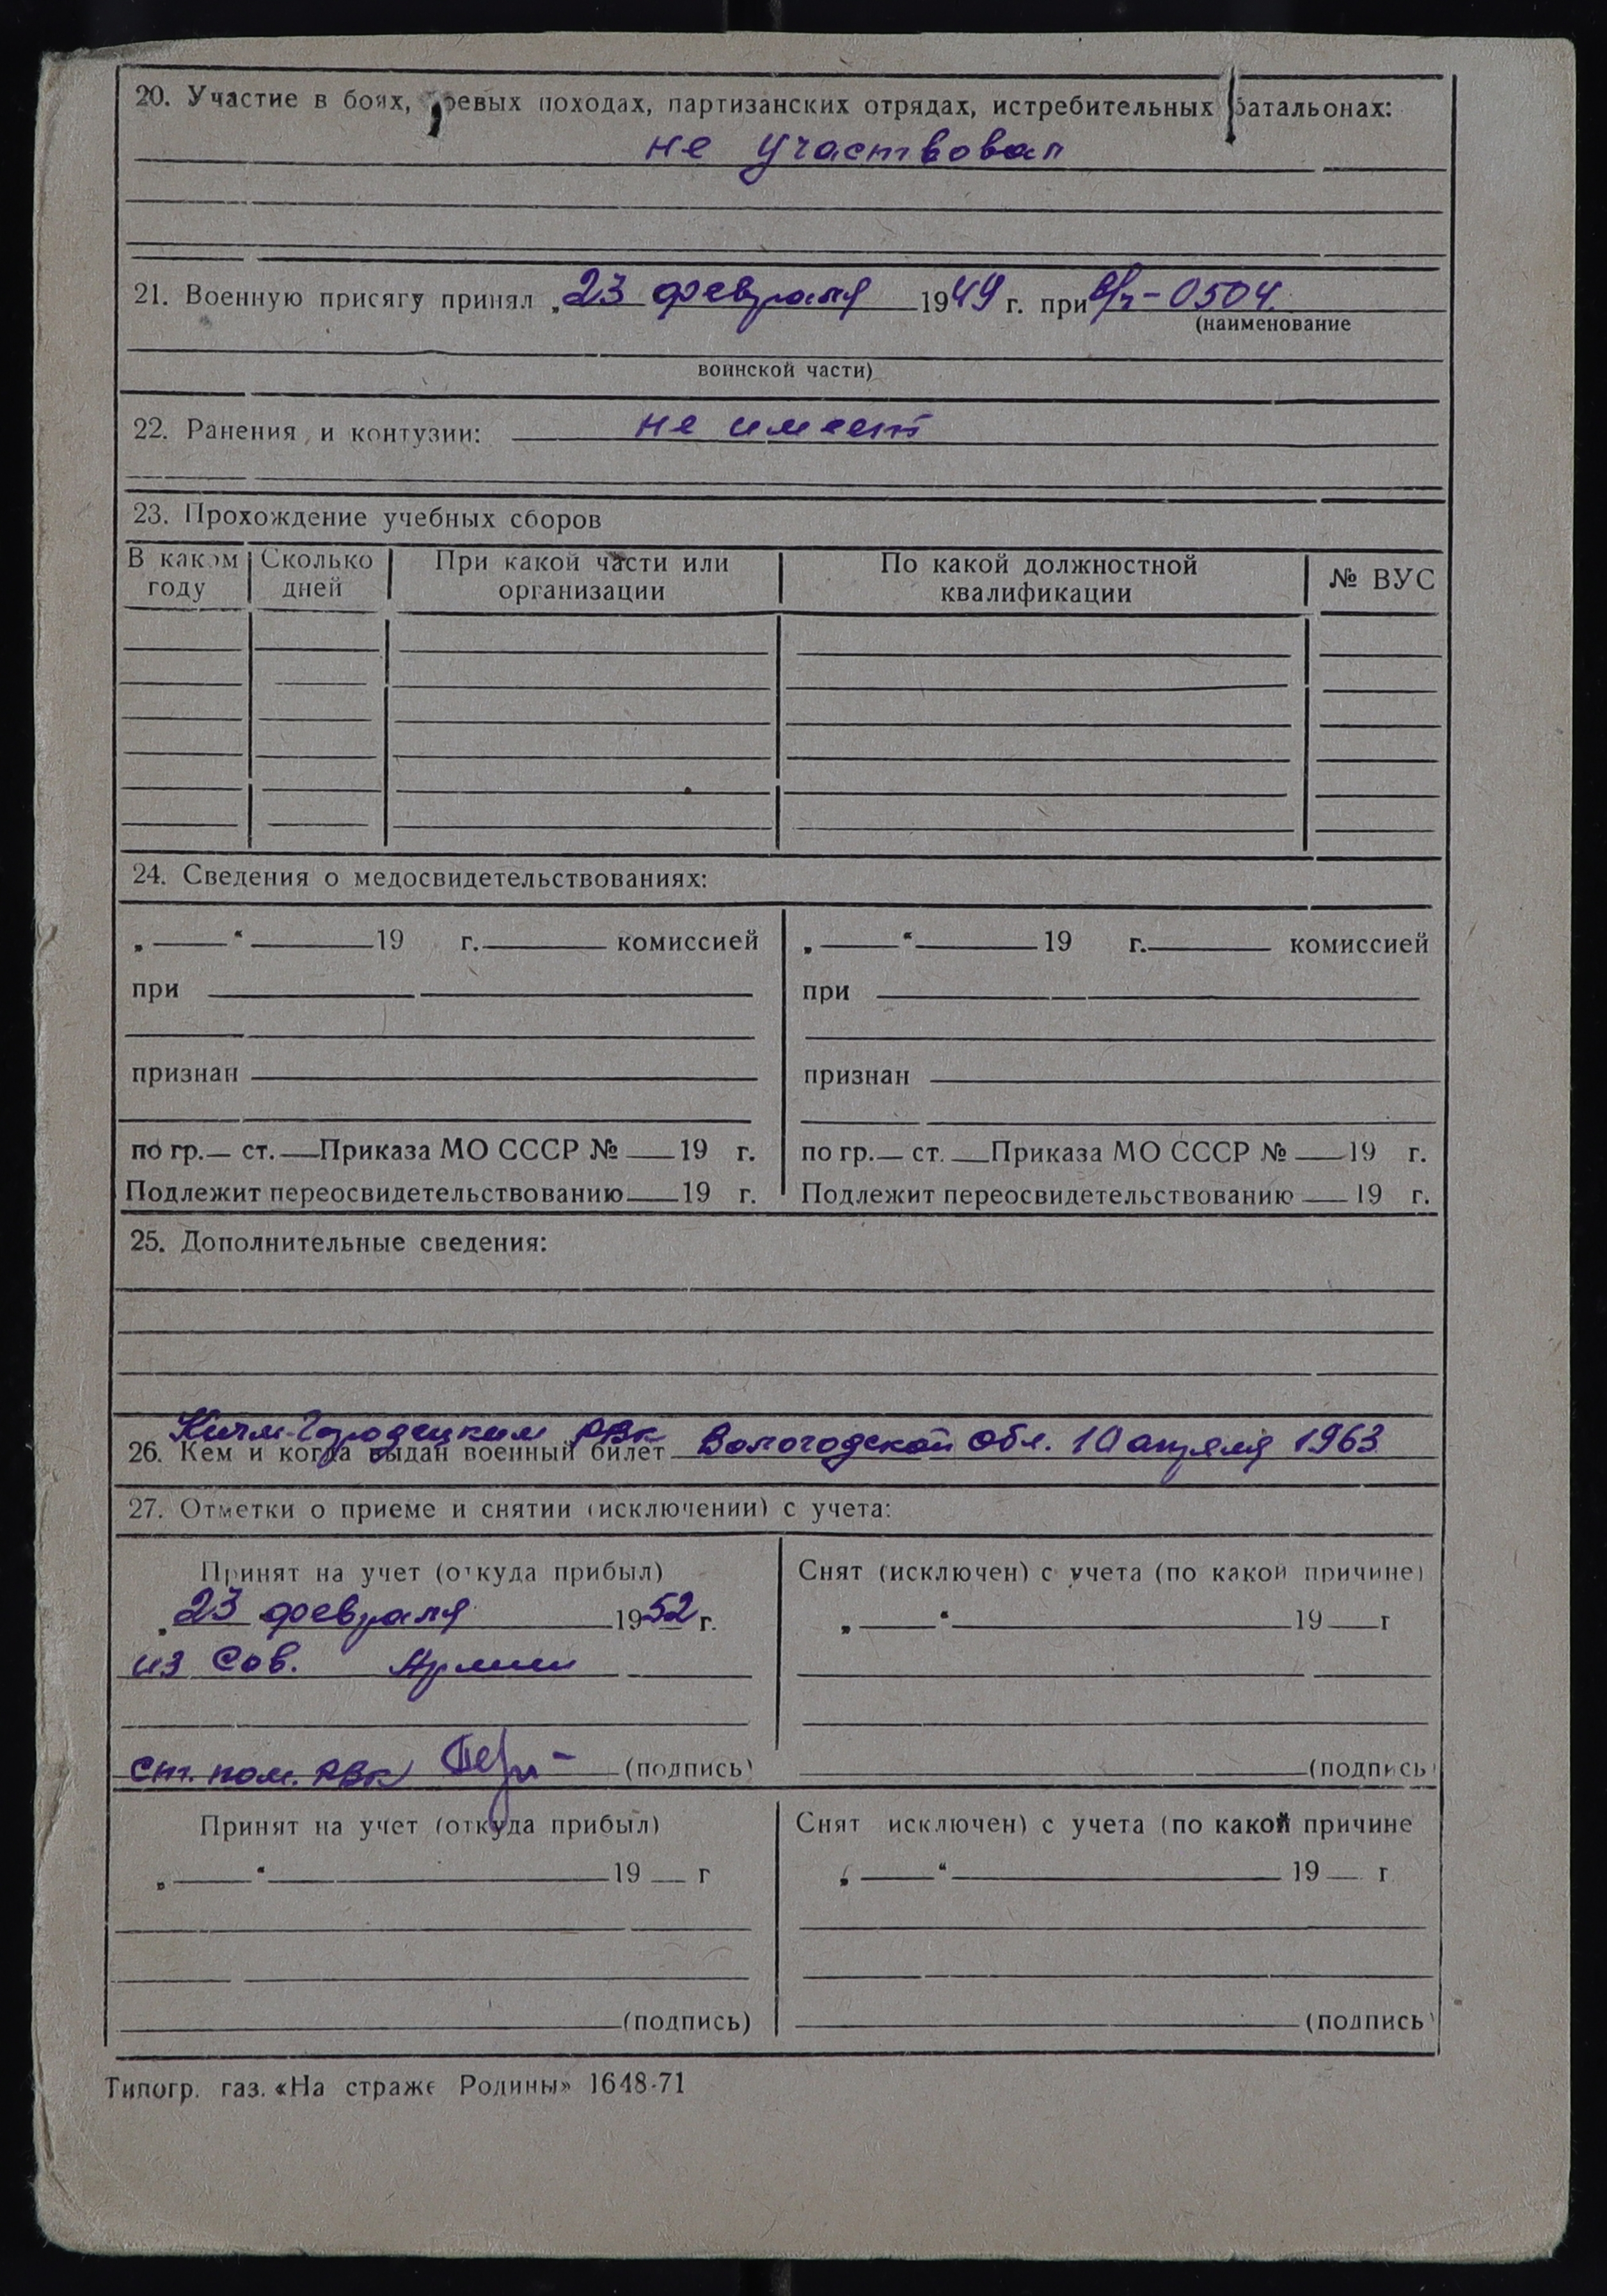 20. Участие в боях, боевых походах, партизанских отрядах, истребительных батальонах:
не участвовал
21. Военную присягу принял „23 февраля 1949 г. при в/ч-0504.
(наименование
воинской части)
22. Ранения и контузии: не имеет
23. Прохождение учебных сборов
В каком году Сколько дней При какой части или организации По какой должностной квалификации № ВУС
24. Сведения о медосвидетельствованиях:
„ “ 19 г. комиссией
при
признан
по гр. ст. Приказа МО СССР № 19 г.
Подлежит переосвидетельствованию 19 г.
„ “ 19 г. комиссией
при
признан
по гр. ст. Приказа МО СССР № 19 г.
Подлежит переосвидетельствованию 19 г.
25. Дополнительные сведения:
Кичм-Городецким РВК
26. Кем и когда выдан военный билет Вологодской обл. 10 апреля 1963
27. Отметки о приеме и снятии (исключении) с учета:
Принят на учет (откуда прибыл)
„23 февраля 1952 г.
из Сов. Армии
ст. пом. РВК (подпись)
Снят (исключен) с учета (по какой причине)
„ “ 19 г
(подпись)
Принят на учет (откуда прибыл)
„ “ 19 г
(подпись)
Снят исключен) с учета (по какой причине
„ “ 19 г
(подпись)
Типогр. газ. «На страже Родины» 1648-71